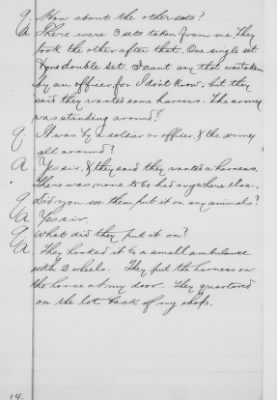 Q. How about the other sets?
A. There were 3 sets taken from me. They
took the other after that. One single set
& one double set. I cant say that was taken
by an officer for I dont know; but they
said they wanted some harness. The army
was standing around?
Q. It was by a soldier or officer, & the army
all around?
A Yes sir. & they said they wanted a harness.
There was none to be had anywhere else.
Q. Did you see them put it on any animals?
A. Yes sir.
Q What did they put it on?
A. They hooked it to a small ambulance
with 2 wheels. They put the harness on
the horse at my door. They quartered
on the lot back of my shop.
14.